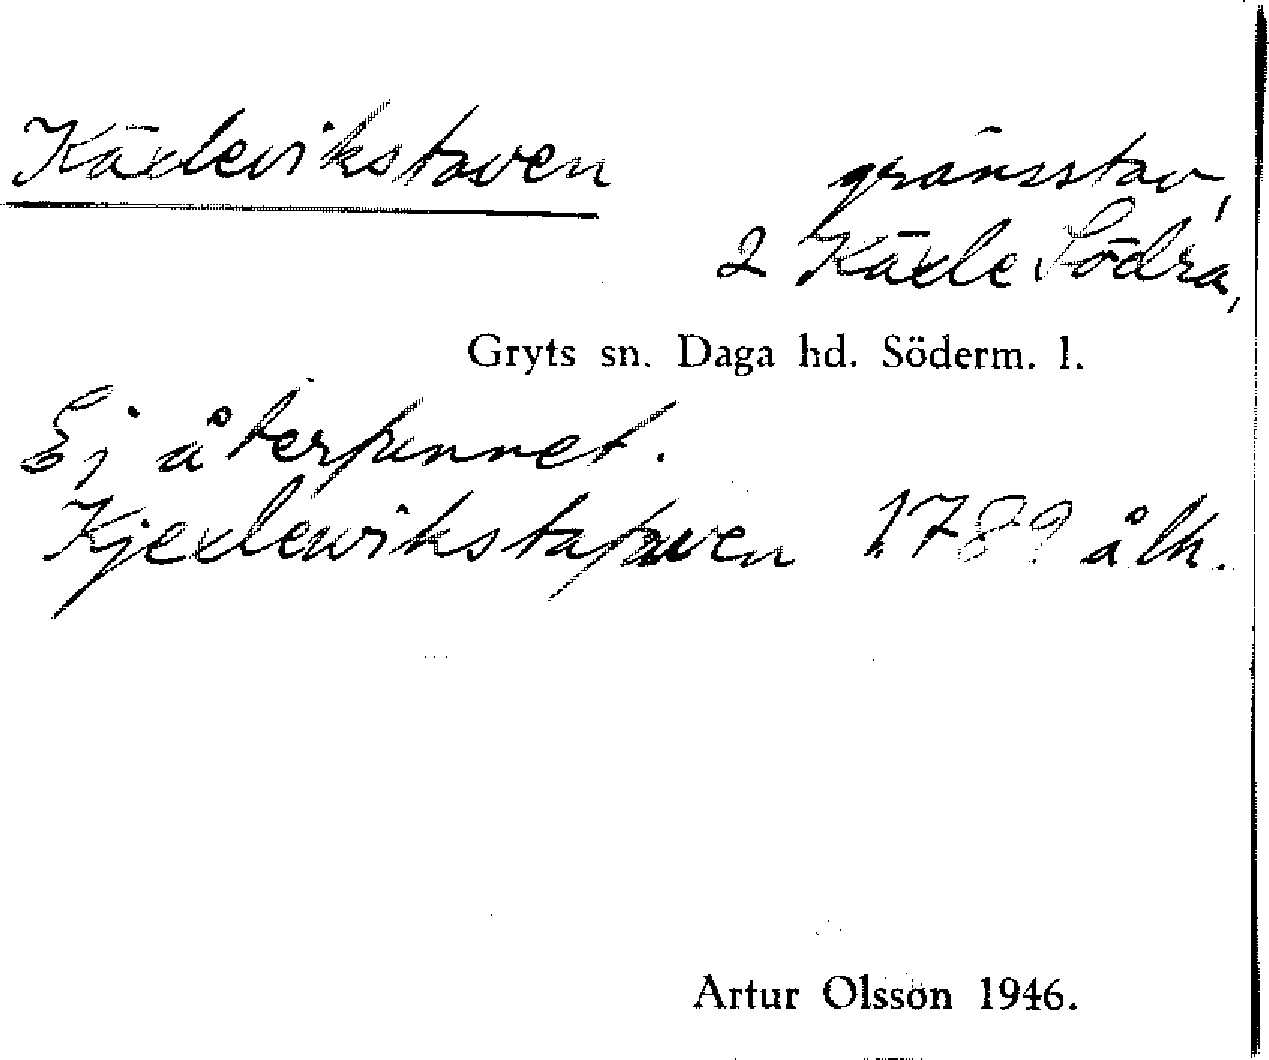 Käxlevikstaven
gränsstav,
2 Käxle Södra,
Gryts sn. Daga hd. Söderm. l.
Ej återfunnet.
Kjexlewikstafwen 1789 älh.
Artur Olsson 1946.